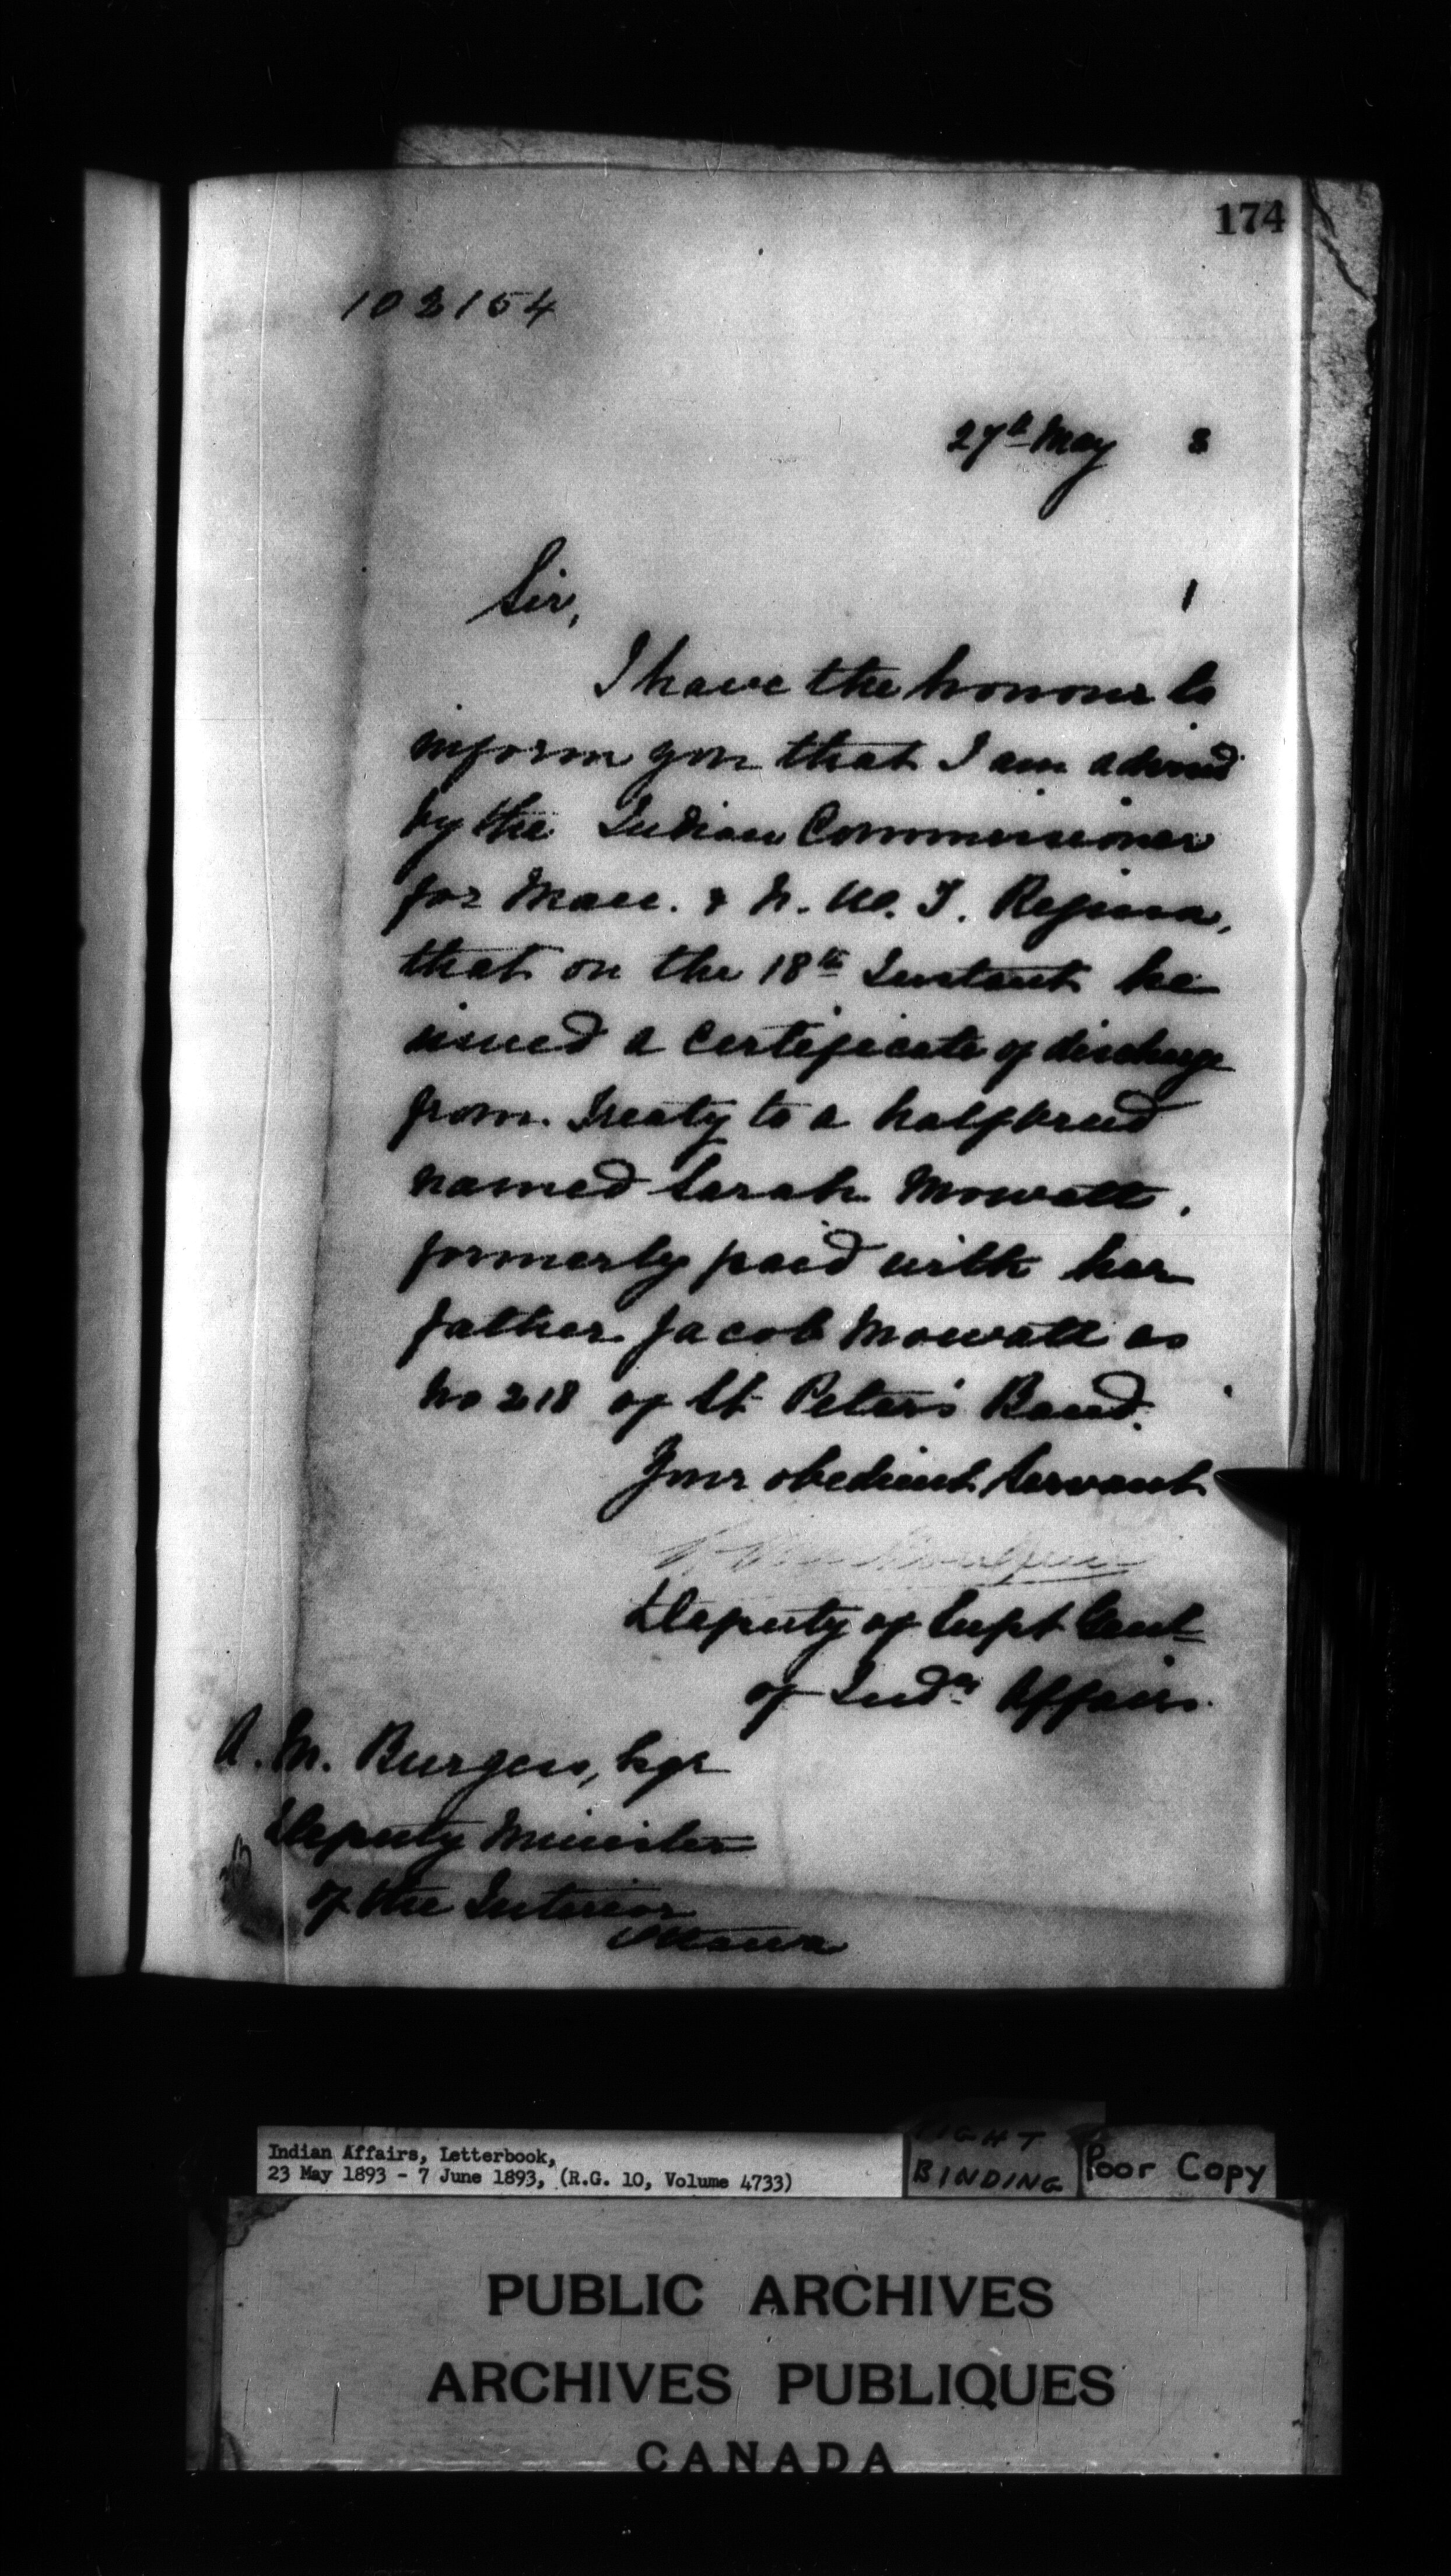 174
102154
27th May 3
Sir,
I have the honour to
inform you that I am advised
by the Indian Commissioner
for Man. & N. W. T. Regina,
that on the 18th Instant he
issued a certificate of discharge
from Treaty to a halfbreed
named Sarah Mowatt,
formerly paid with her
father Jacob Mowatt as
No 218 of St Peter's Band.
Your obedient Servant
Deputy of Supt Genl
of Indn Affairs.
A. M. Burgess, Esqr
Deputy Minister
of the Interior
Ottawa
Indian Affairs, Letterbook,
23 May 1893 - 7 June 1893, (R.G. 10, Volume 4733)
BINDING
Poor Copy
PUBLIC ARCHIVES
ARCHIVES PUBLIQUES
CANADA